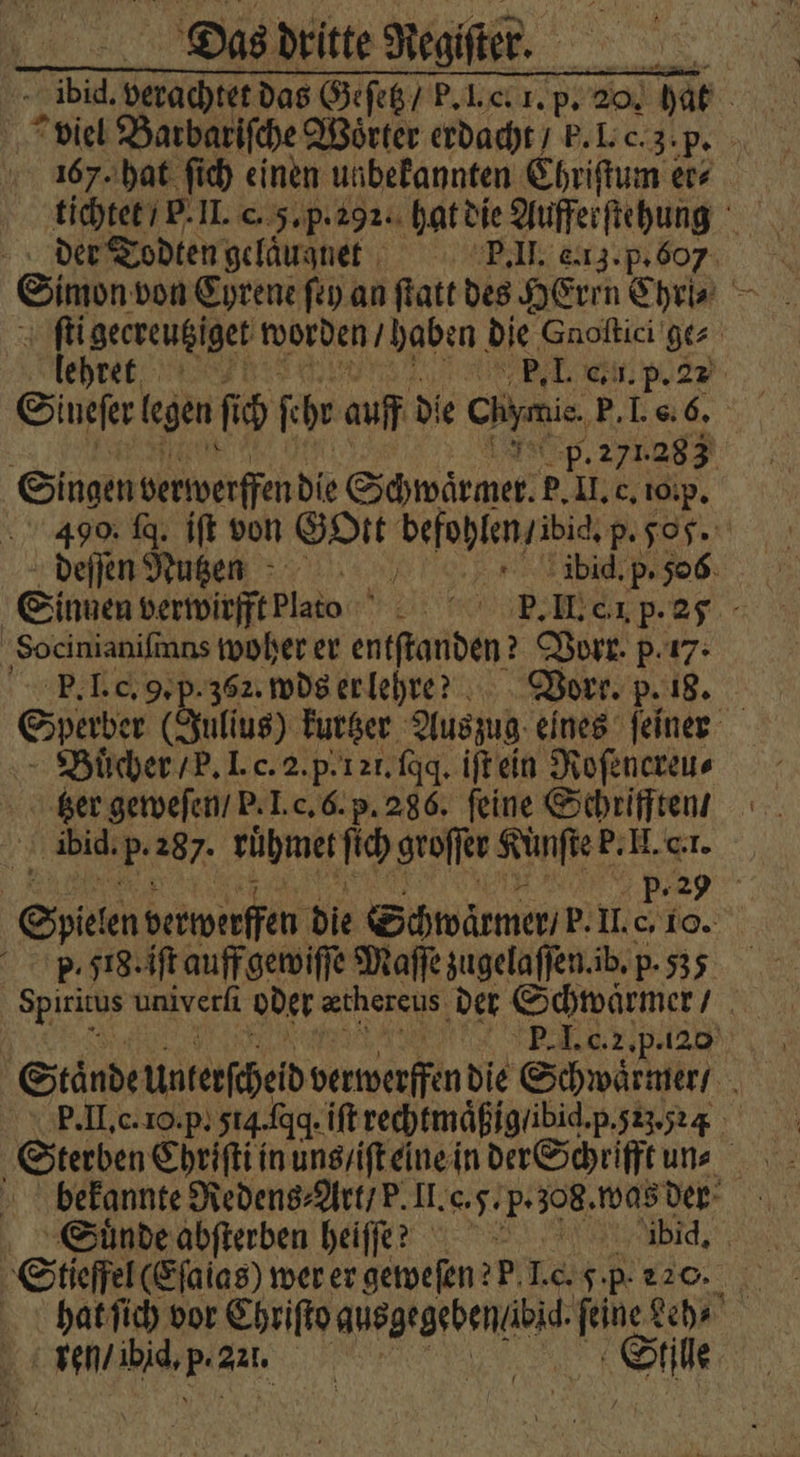 Das dritte Regiſter.
ibid. verachtet das Geſetz / P. I. c. 1. p. 20. hat
viel Barbariſche Woͤrter erdacht / P. I. c. 3. p.
167. hat ſich einen unbekannten Chriſtum er⸗
tichtet / P. II. c. 5. p. 292. hat die Aufferſtehung
der Todten gelaͤugnet P. II. c. 13. p. 607
Simon von Cyrene ſey an ſtatt des HErrn Chri⸗
ſti gecreutziget worden / haben die Gnoſtici ge⸗
lehret P. I. c. 1. p. 22
Sineſer legen ſich ſehr auff die Chymie. P. I. c. 6.
p. 271. 283
Singen verwerffen die Schwaͤrmer. P. II. c. 10. p.
490. ſq. iſt von GOtt befohlen / ibid. p. 505.
deſſen Nutzen ibid. p. 506
Sinnen verwirfft Plato P. II. c. 1. p. 25
Socinianiſmus woher er entſtanden? Vorr. p. 17.
P. I. c. 9. p. 362. wds er lehre? Vorr. p. 18.
Sperber (Julius) kurtzer Auszug eines ſeiner
Buͤcher / P. I. c. 2. p. 121. ſqq. iſt ein Roſencreu⸗
tzer geweſen / P. I. c. 6. p. 286. ſeine Schrifften /
ibid. p. 287. ruͤhmet ſich groſſer Kuͤnſte P. II. c. 1.
p. 29
Spielen verwerffen die Schwaͤrmer / P. II. c. 10.
p. 518. iſt auff gewiſſe Maſſe zugelaſſen. ib. p. 535
Spiritus univerſi oder æthereus der Schwaͤrmer /
P. I. c. 2. p. 120
Staͤnde Unterſcheid verwerffen die Schwaͤrmer /
P. II. c. 10. p. 514. ſqq. iſt rechtmaͤßig / ibid. p. 523. 524
Sterben Chriſti in uns / iſt eine in der Schrifft un⸗
bekannte Redens⸗Art / P. II. c. 5. p. 308. was der
Suͤnde abſterben heiſſe? ibid.
Stieffel (Eſaias) wer er geweſen? P. I. c. 5. p. 220.
hat ſich vor Chriſto ausgegeben / ibid. ſeine Leh⸗
ren / ibid. p. 221.
Stille